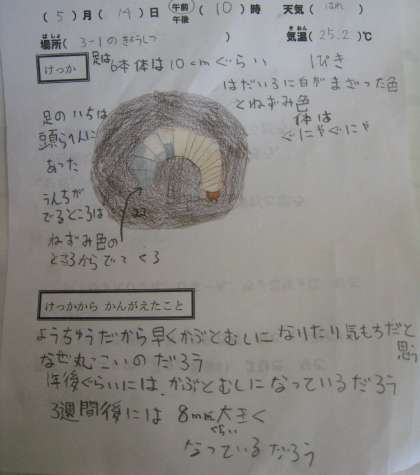 (5)月(14)日 午前 午後 (10)時 天気(はれ)
場所(3-1のきょうしつ) 気温(25.2)℃
けっか
足は6本体は10cmぐらい 1ぴき
はだいろに白がまざった色
とねずみ色
体は
ぐにゃぐにゃ
足のいちは
頭らへんに
あった
うんちが
でるところは
ねずみ色の
ところからでてくる
けっかから かんがえたこと
ようちゅうだから早くかぶとむしになりたり気もちだと
思う
なぜ丸こいのだろう
1年後ぐらいには、かぶとむしになっているだろう
3週間後には 8mm大きく
ぐらい
なっているだろう